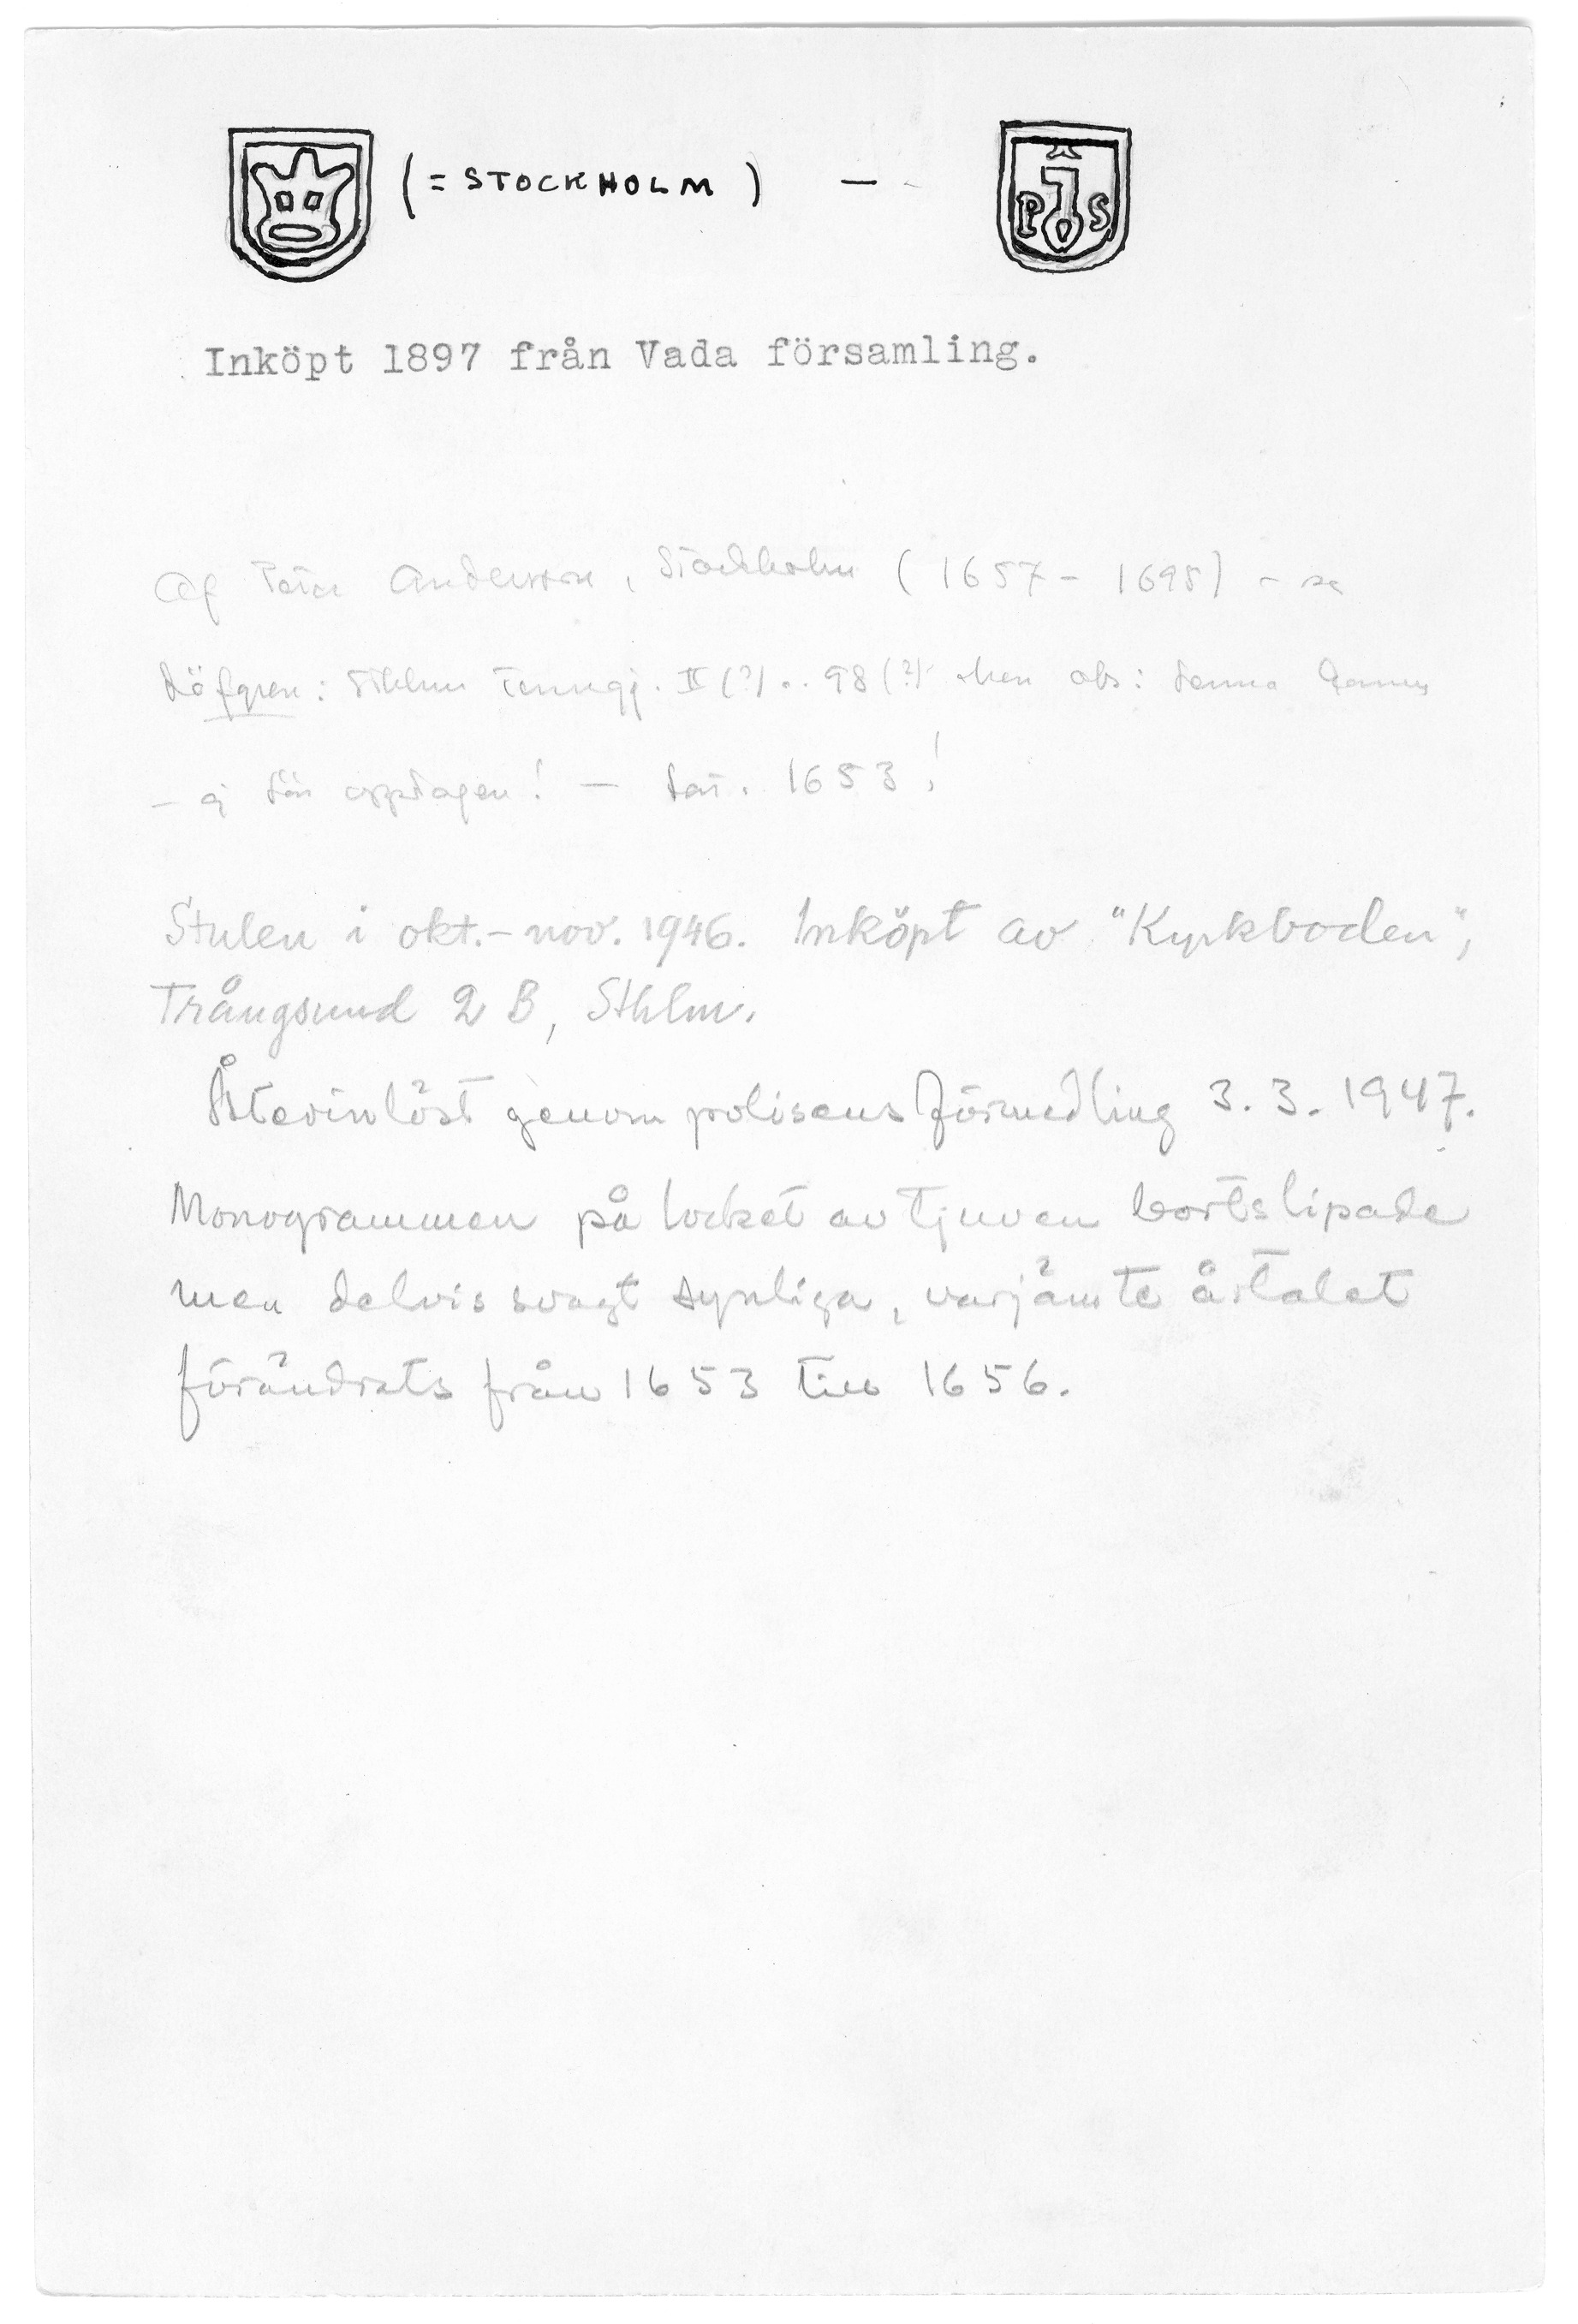 (= STOCKHOLM) —
P S
Inköpt 1897 från Vada församling.
Af Petter Andersson, Stockholm (1657 - 1695) - se
Löfgren: Sthlms Tenngj. II (?) .. 98 (?) Men obs: denna
- ej där upptagen! — dat. 1653!
Stulen i okt.-nov. 1946. Inköpt av "Kyrkboden",
Trångsund 2 B, Sthlm.
Återinlöst genom polisens förmedling 3.3.1947.
Monogrammen på locket av tjuven bortslipade
men delvis svagt synliga, varjämte årtalet
förändrats från 1653 till 1656.